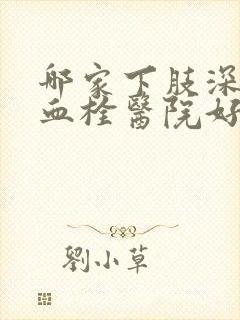 邴家下肢深
血栓醫院好
劉小草